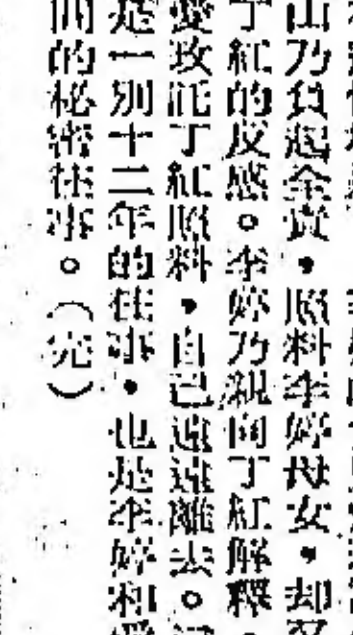 山乃負起全責，照料李婷母女，却
丁紅的反感。李婷乃親向丁紅解釋，
愛玫託丁紅照料，自己遠遠離去。
是一別十二年的往事，也是李婷和愛
間的秘密往事。（完）